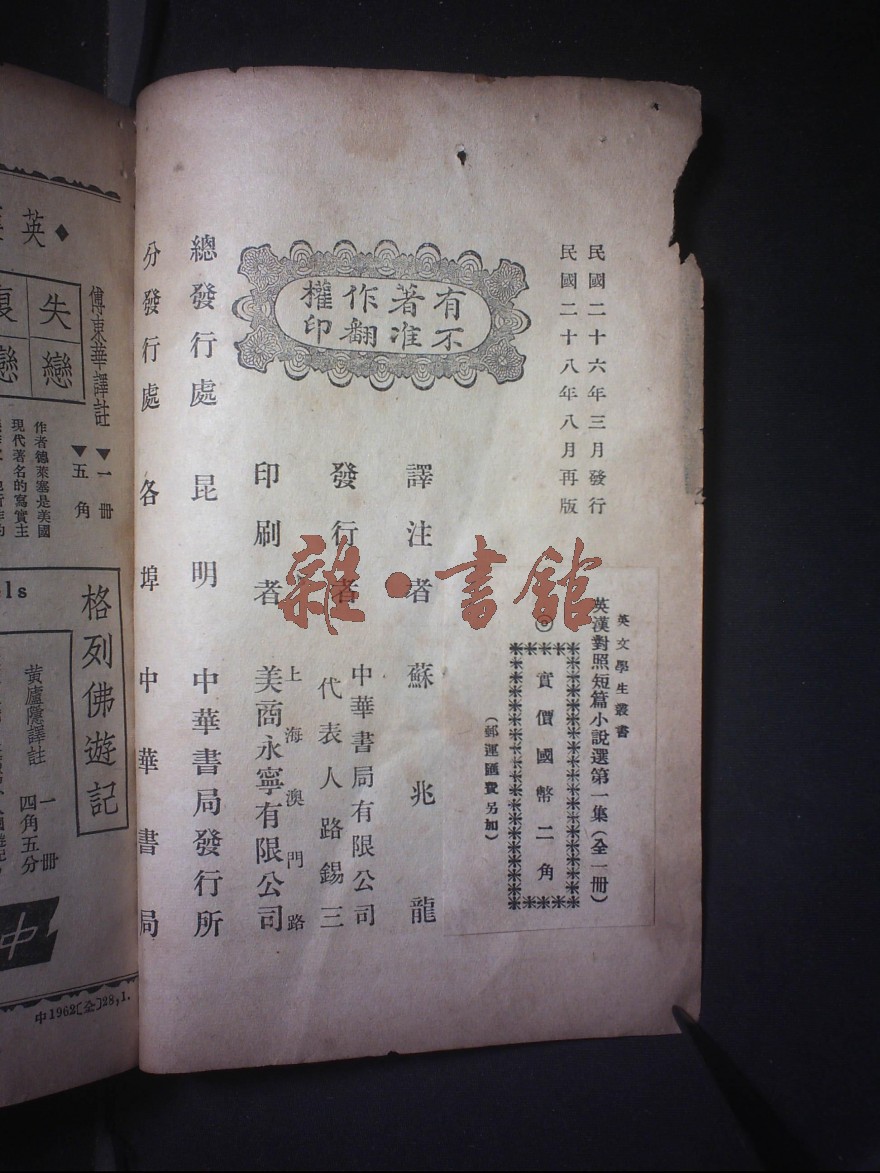 民國二十六年三月發行
民國二十八年八月再版
有不
著准
作翻
權印
英文學生叢書
英漢對照短篇小說選第一集（全一冊）
◎實價國幣二角
（郵運匯費另加）
譯注者 蘇兆龍
發行者 中華書局有限公司
代表人路錫三
印刷者 上海澳門路
美商永寧有限公司
總發行處 昆明 中華書局發行所
分發行處 各埠 中華書局
雜·書館
◆英
傅東華譯註
▼一冊
▼五角
失戀
復戀
作者德萊塞是美國
現代著名的寫實主
ls
格列佛遊記
黃廬隱譯註
一冊
四角五分
中
中1962〔全〕28,1.